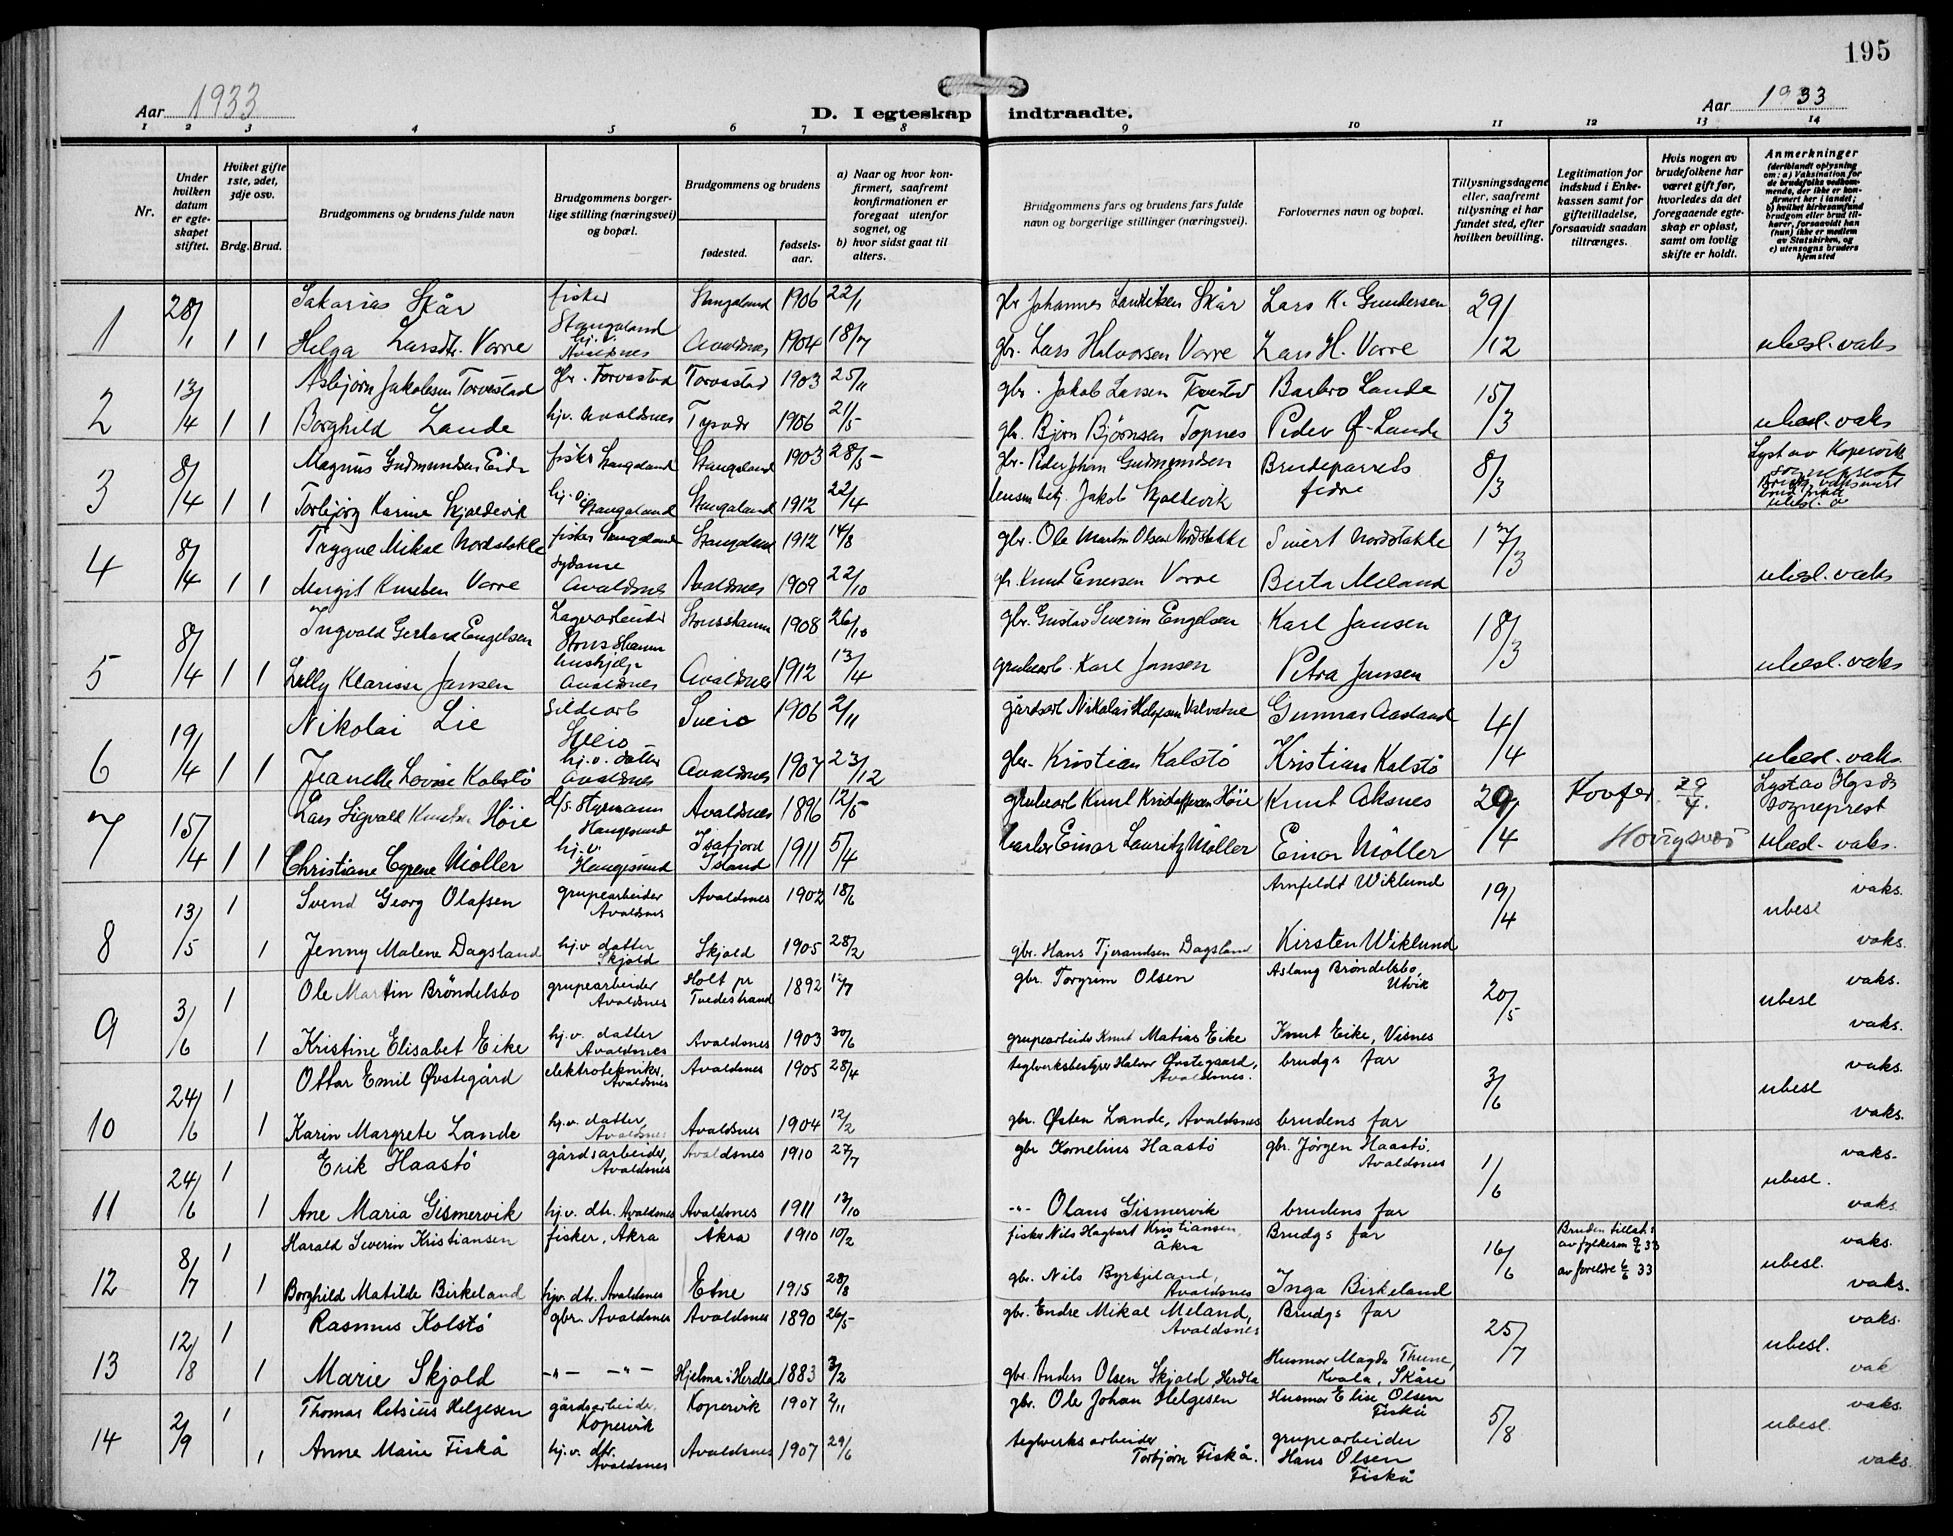 195
Aar 1933
D. I egteskap indtraadte.
Aar 1933
1 2 3 4 5 6 7 8 9 10 11 12 13 14
Nr.
Under hvilken datum er egteskapet stiftet.
Hviket gifte 1ste, 2det, 3dje osv.
Brdg. Brud.
Brudgommens og brudens fulde navn
Brudgommens borgerlige stilling (næringsvei) og bopæl.
Brudgommens og brudens
fødested. fødselsaar.
a) Naar og hvor konfirmert, saafremt konfirmationen er foregaat utenfor sognet, og
b) hvor sidst gaat til alters.
Brudgommens fars og brudens fars fulde navn og borgerlige stillinger (næringsvei).
Forlovernes navn og bopæl.
Tillysningsdagene eller, saafremt tillysning ei har fundet sted, efter hvilken bevilling.
Legitimation for indskud i Enkekassen samt for giftetilladelse, forsaavidt saadan tiltrænges.
Hvis nogen av brudefolkene har været gift før, hvorledes da det foregaaende egteskap er opløst, samt om lovlig skifte er holdt.
Anmerkninger
(deriblandt oplysning om: a) Vaksination for de brudefolks vedkommende, der ikke er konfirmert her i landet; b) hvilket kirkesamfund brudgom eller brud tilhører, forsaavidt han (hun) ikke er medlem av Statskirken, og c) utensogns bruders hjemsted
1 28/1 Sakarias Skår fisker Stangaland Stangaland 1906 22/1 gbr Johannes Skår Lars K. Gundersen 29/12
1 1 Helga Larsdtr. Vorre hj.v. Avaldsnes Avaldsnes 1904 18/7 gbr. Lars Halvorsen Vorre Lars H. Vorre ubesl. vaks
2 13/4 Asbjørn Jakobsen Torvestad gbr. Torvastad Torvastad 1903 25/11 gbr. Jakob Larsen Barbro Lande 15/3
1 1 Borghild Lande hj.v. Avaldsnes Tysvær 1906 21/5 gbr. Bjørn Bjørnsen Topnes Peder Ø. Lande ubesl. vaks
3 8/4 Magnus Gudmundsen Eide fisker Stangaland Stangaland 1903 28/5 gbr. Peder Johan Gudmundsen Brudeparrets fedre 8/3 Lyst av Kopervik sogneprest
1 1 Torbjørg Karine hj.v. Stangaland Stangaland 1912 22/4 Jakob ubesl.
4 8/4 Trygve Mikal Nordstokke fisker Stangaland 1912 14/8 gbr. Ole Martin Olsen Nordstokke Sivert Nordstokke 17/3
1 1 Margit Knutsen Vorre sydame Avaldsnes Avaldsnes 1909 22/10 gbr. Knut Vorre Berta Meland ubesl. vaks
5 8/4 Ingvald Gerhard Engelsen Lagerarbeider 1908 26/10 gbr. Gustav Severin Engelsen Karl Jansen 18/3
1 1 Lilly Klarisse Jansen hushjelp Avaldsnes Avaldsnes 1912 13/4 grubearb. Karl Jansen Petra Jansen ubesl. vaks
6 19/4 Nikolai Lie Sildearb Sveio Sveio 1906 2/11 gårdsarb Nikolai Valvatne Gunnar Aasland 4/4
1 1 Jeanette Lovise Kolstø hj.v. datter Avaldsnes Avaldsnes 1907 23/12 gbr. Kristian Kalstø Kristian Kalstø ubesl. vaks.
7 15/4 Lars Sigvald Knutsen Høie d/s. Styrmann Haugesund Avaldsnes 1896 12/5 grubearb Knut Kristoffersen Høie Knut Aksnes 29/4 29/4. Lyst av Hgsds sogneprest
1 1 Christiane Møller hj.v. Haugesund Isafjord Island 1911 5/4 Einar Lauritz Møller Einar Møller ubesl. vaks.
8 13/5 1 Svend Georg Olafsen grupearbeider Avaldsnes Avaldsnes 1902 18/6 Arnfeldt Wiklund 19/4 ubesl vaks.
1 Jenny Malene Dagsland hj.v datter Skjold Skjold 1905 28/2 gbr. Hans Tjerandsen Dagsland Kirsten Wiklund vaks.
9 3/6 1 Ole Martin Brøndelsbo grupearbeider Avaldsnes Holt pr Tvedestrand 1892 gbr. Torgrim Olsen Aslaug Brøndelsbo, Utvik 20/5 ubesl vaks.
1 Kristine Elisabet Eike hj.v. datter Avaldsnes Avaldsnes 1903 30/6 grupearbeider Knut Matias Eike Knut Eike, Visnes vaks.
10 24/6 1 Ottar Emil Øvstegård elektrotekniker, Avaldsnes Avaldsnes 1905 28/4 teglverksbestyrer Halvor Øvstegaard, Avaldsnes. brudgs far 3/6 ubesl vaks.
1 Karin Margrete Lande hj.v. datter Avaldsnes Avaldsnes 1904 12/2 gbr. Østen Lande, Avaldsnes brudens far vaks.
11 24/6 1 Erik Haastø gårdsarbeider, Avaldsnes Avaldsnes 1910 27/7 gbr Kornelius Haastø gbr. Jørgen Haastø, Avaldsnes 1/6 ubesl. vaks.
1 Ane Maria Gismervik hj.v. dtr. Avaldsnes Avaldsnes 1911 13/10 -"- Olaus Gismervik brudens far vaks.
12 8/7 1 Harald Severin Kristiansen fisker, Åkra Åkra 1910 10/2 fisker Nils Hagbart Kristiansen Åkra Brudgs far 16/6 Bruden tillat: av fylkesm 9/6 33 av foreldre 6/6 33 ubesl. vaks.
1 Borghild Matilde Birkeland hj.v. dtr. Avaldsnes Etne 1915 28/8 gbr. Nils Byrkjeland, Avaldsnes Inga Birkeland vaks.
13 12/8 1 Rasmus Kolstø gbr. Avaldsnes Avaldsnes 1890 26/5 gbr. Endre Mikal Meland, Avaldsnes Brudgs far 25/7 ubesl. vaks.
1 Marie Skjold -"- -"- Hjelma i Herdla 1883 3/2 gbr. Anders Olsen Skjold, Herdla Husmor Magda Thune, Kvala, Skåre vak
14 2/9 1 Thomas Retsius Helgesen gårdsarbeider, Kopervik Kopervik 1907 2/11 gbr. Ole Johan Helgesen Husmor Elise Olsen Fiskå 5/8 ubesl. vaks.
1 Anne Marie Fiskå hj.v. dtr. Avaldsnes Avaldsnes 1907 29/6 teglverksarbeider Torbjørn Fiskå. grupearbeider Hans Olsen Fiskå vaks.